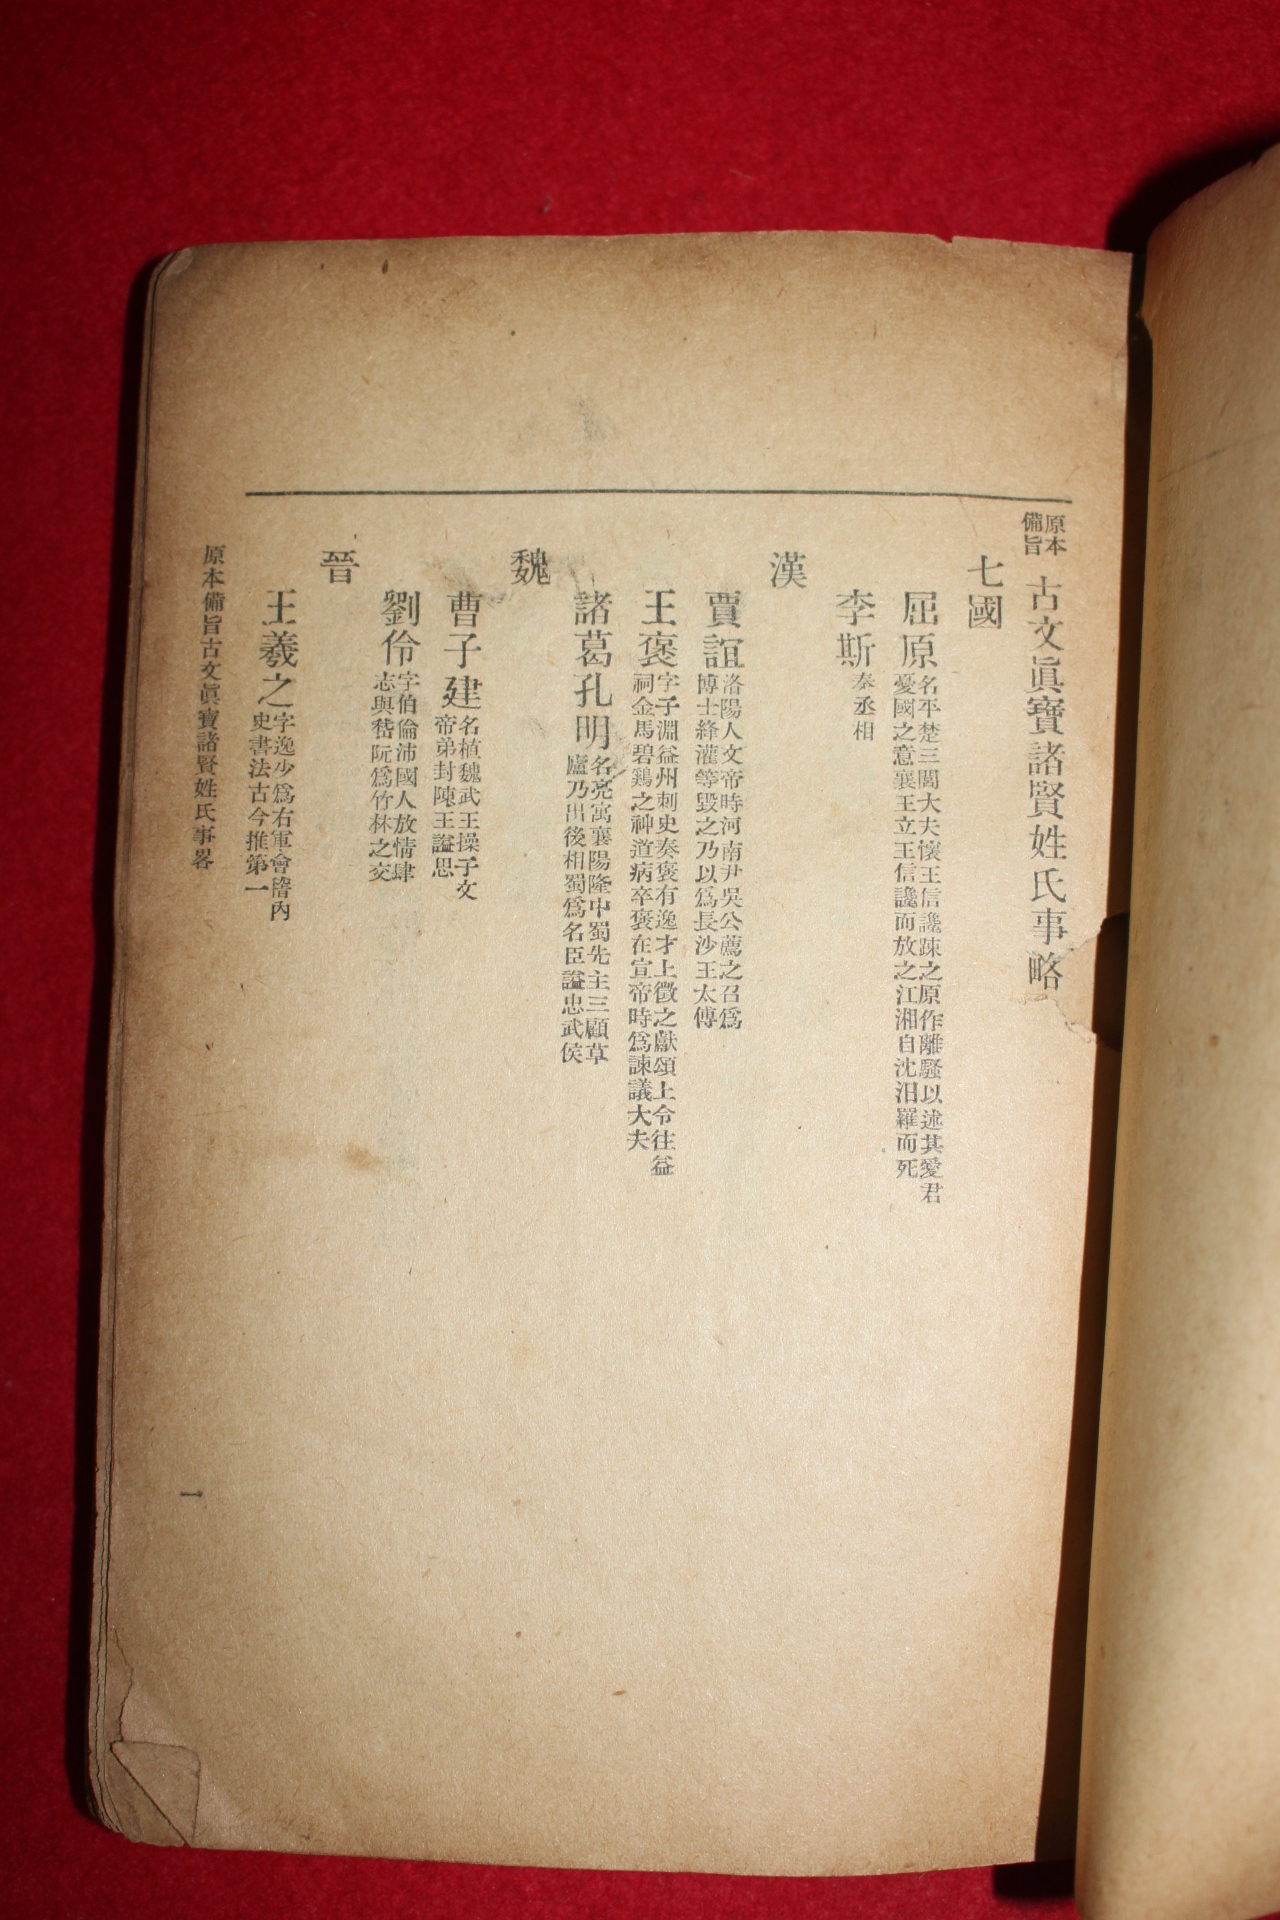 原本備旨 古文眞寶諸賢姓氏事略
七國
屈原 名平楚三閭大夫懷王信讒踈之原作離騷以述其愛君
憂國之意襄王立王信讒而放之江湘自沈汨羅而死
李斯 秦丞相
漢
賈誼 洛陽人文帝時河南尹吳公薦之召爲
博士絳灌等毁之乃以爲長沙王太傅
王褒 字子淵益州刺史奏褒有逸才上徵之獻頌上令往益
祠金馬碧鷄之神道病卒褒在宣帝時爲諫議大夫
諸葛孔明 名亮寓襄陽隆中蜀先主三顧草
廬乃出後相蜀爲名臣謚忠武侯
魏
曹子建 名植魏武王操子文
帝弟封陳王謚思
劉伶 字伯倫沛國人放情肆
志與嵇阮爲竹林之交
晉
王羲之 字逸少爲右軍會稽內
史書法古今推第一
原本備旨古文眞寶諸賢姓氏事畧
一